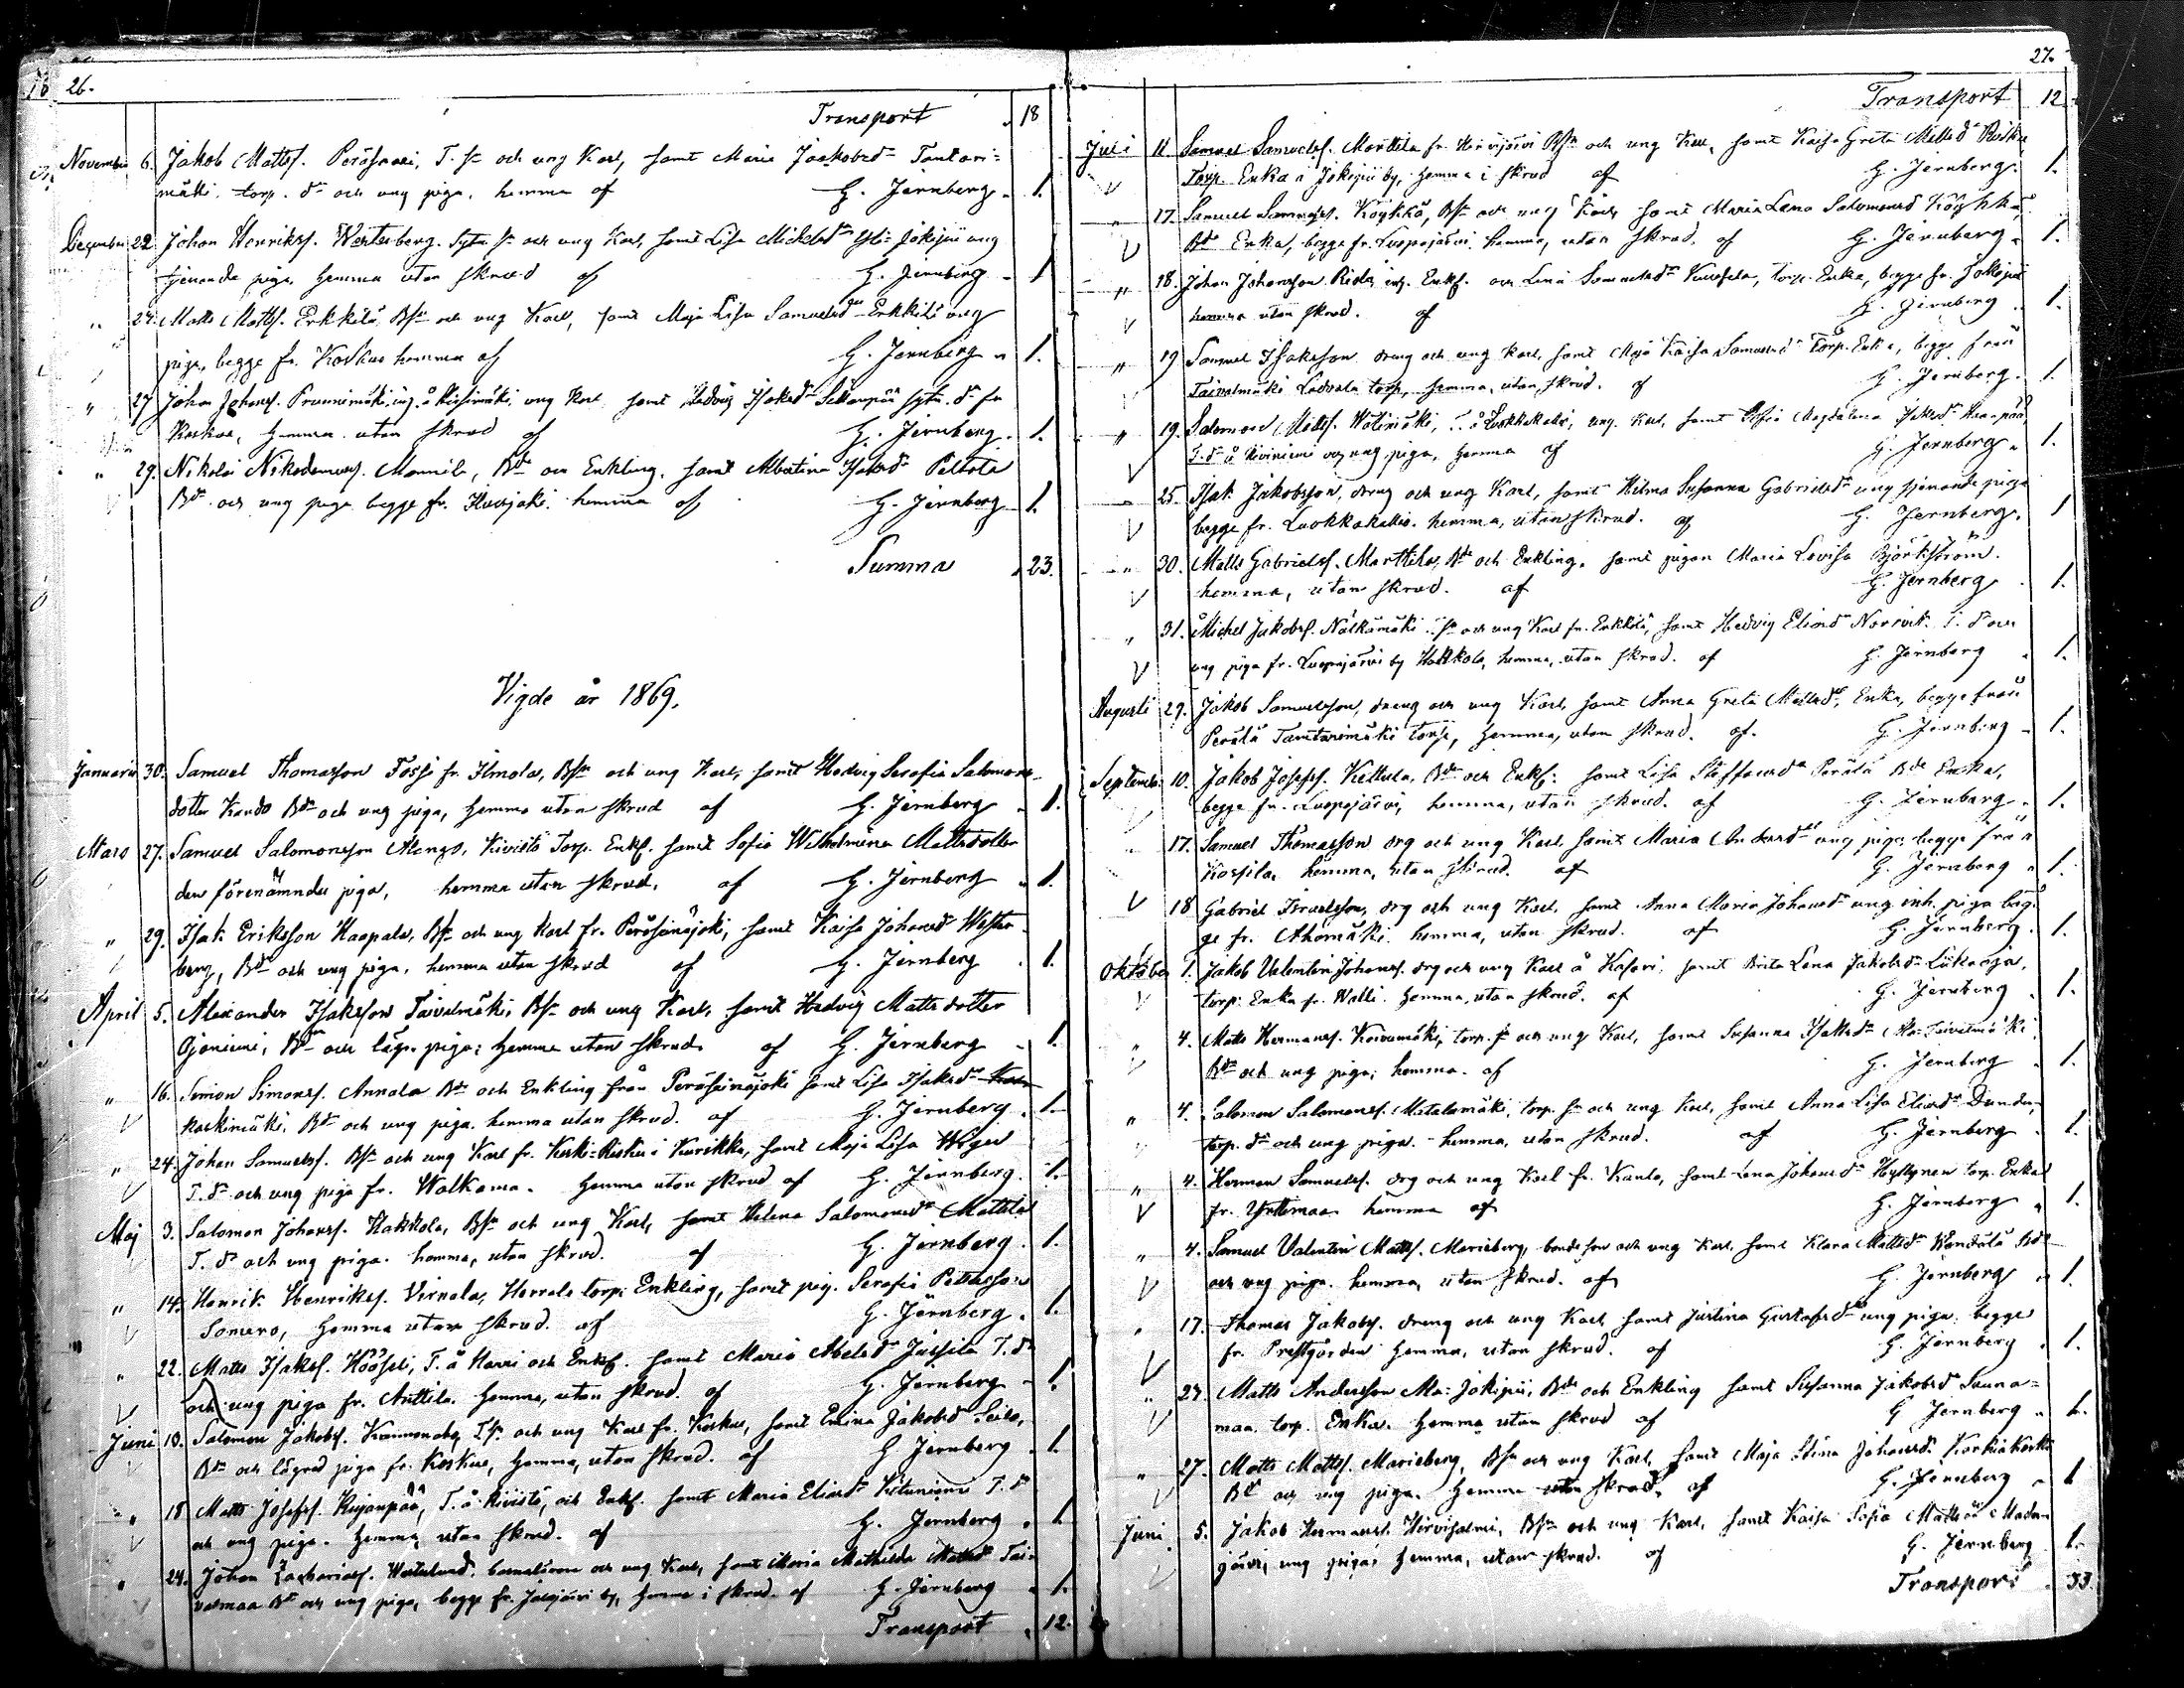 76 26.
Transport 18
November 6. Jakob Matts. Peräsaari, T. sn och ung Karl, samt Maria Jaakobsdr Tantari=
mäki torp. dr och ung piga, hemma af G. Jernberg 1.
December 22. Johan Henrikss. Westerberg. sytn. sn och ung Karl, samt Lisa Mickelsdr Jokipii ung
tjenande piga, hemma utan skrud af G. Jernberg 1
" 27. Matts Matts. Erkkilä Bsn och ung Karl, samt Maja Lisa Samuelsdr Erkkilä ung
piga, begge fr. Koskue hemma af G. Jernberg 1.
" 27 Johan Johans. ung Karl samt Hedvig Isaksdr sytn. dr fr.
Koskue, hemma utan skrud af G. Jernberg. 1.
" 29. Nikolai Nikodemuss. Mannila, Bde och Enkling, samt Albertina Isaksdr Peltola
Bdr och ung piga begge fr. hemma af G. Jernberg 1.
Summa 23.
Vigde år 1869.
Januari 30. Samuel Thomasson Fossi fr. Ilmola, Bsn och ung Karl, samt Hedvig Serafia Salomons-
dotter Kando Bdr och ung piga, hemma utan skrud af G. Jernberg 1.
Mars 27. Samuel Salomonsson Alongo, Kivistö Torp. Enkl. samt Sofia Wilhelmina Mattsdotter
den förenämnda piga, hemma utan skrud. af G. Jernberg 1.
" 29. Isak Eriksson Haapala, Bsn och ung Karl fr. Peräseinäjoki, samt Kaisa Johansdr Wester-
berg, Bdr och ung piga, hemma utan skrud af G. Jernberg 1.
April 5. Alexander Isaksson Taivalmäki, Bsn och ung Karl, samt Hedvig Mattsdotter
Ojaniemi, Bdr och lägr. piga; hemma utan skrud. af G. Jernberg 1.
" 16. Simon Simons. Annala Bde och Enkling från Peräseinäjoki samt Lisa Isaksdr
Koskimäki, Bdr och ung piga. hemma utan skrud. af G. Jernberg. 1.
" 24. Johan Samuelss. Bsn och ung Karl fr. Koski-Risku i Kurikka, samt Maja Lisa
T. dr och ung piga fr. Walkama. Hemma utan skrud af G. Jernberg. 1.
Maj 3. Salomon Johans. Hakkola, Bsn och ung Karl, samt Helena Salomonsdr Mattila
T. dr och ung piga. hemma, utan skrud. af G. Jernberg. 1.
" 14. Henrik Henrikss. Virnala, Harrola torp. Enkling, samt pig. Serafia Pettersson
Somero, hemma utan skrud. af G. Jernberg. 1.
" 22. Matts Isaks. T. å Harri och Enkl. samt Maria Abelsdr Jussila T. dr
och ung piga fr. Anttila. Hemma, utan skrud. af G. Jernberg 1.
Juni 10. Salomon Jakobs. Tsn och ung Karl fr. Koskue, samt Emina Jakobsdr
Bdr och lägrad piga fr. Koskue, hemma, utan skrud. af G. Jernberg 1.
" 18 Matts Josefss. Kujanpää, T. å Kivistö, och Enkl. samt Maria Eliasdr T. dr
och ung piga. Hemma utan skrud. af G. Jernberg. 1.
" 24. Johan Zachariass. Westerlund, barnalärare och ung Karl, samt Maria Mathilda Mattsdr Tai-
valmaa Bdr och ung piga, begge fr. Jalasjärvi by, hemma i skrud. af G. Jernberg 1.
Transport 12.
27.
Transport 12
Juli 11 Samuel Samuelss. Marttila fr. Hirvijärvi Bsn och ung Karl, samt Kaisa Greta Mattsdr Risku
Torp. Enka å Jokipii by, hemma i skrud af G. Jernberg. 1.
" 17. Samuel Samuelss. Köykkä, Bsn och ung Karl samt Maria Lena Salomonsdr Köykkä
Bde Enka, begge fr. Luopajärvi hemma, utan skrud. af G. Jernberg. 1.
" 18. Johan Johansson inh. Enkl. och Lena Samuelsdr torp. Enka, begge fr. Jokipii
hemma utan skrud. af G. Jernberg. 1.
" 19 Samuel Isaksson dreng och ung Karl, samt Maja Kaisa Samuelsdr Torp. Enka, begge från
Taivalmäki torp, hemma, utan skrud. af G. Jernberg. 1.
" 19. Salomon Matts. å Luokkakallio, ung Karl, samt Sofia Magdalena Isaksdr
T. dr å Kiviniemi och ung piga, hemma af G. Jernberg. 1.
25. Isak Jakobsson, dreng och ung Karl, samt Hilma Susanna Gabrielsdr ung tjenande piga
begge fr. Luokkakallio. hemma, utan skrud. af G. Jernberg. 1
" 30. Matts Gabrielss. Marttila, Bde och Enkling, samt pigan Maria Lovisa Björkström.
hemma, utan skrud. af G. Jernberg 1.
" 31. Michel Jakobs. Nälkämäki sn och ung Karl fr. Erkkilä, samt Hedvig Eliasdr Norrvik T. dr och
ung piga fr. Luopajärvi by Hakkola, hemma, utan skrud. af G. Jernberg 1.
Augusti 29. Jakob Samuelsson, dreng och ung Karl, samt Anna Greta Mattsdr, Enka, begge från
Perälä Tantarimäki torp, hemma, utan skrud. af G. Jernberg 1.
September 10. Jakob Josefss. Kettula, Bde och Enkl. samt Lisa Staffansdr Perälä Bde Enka,
begge fr. Luopajärvi, hemma, utan skrud. af G. Jernberg. 1.
" 17. Samuel Thomasson drg och ung Karl samt Maria Andersdr ung piga, begge från
hemma, utan skrud. af G. Jernberg 1.
18 Gabriel Israelsson, drg och ung Karl, samt Anna Maria Johansdr ung inh. piga beg-
ge fr. Ahomäki. hemma, utan skrud. af G. Jernberg. 1.
Oktober 1. Jakob Valentin Johans. drg och ung Karl å samt Brita Lena Jakobsdr
torp. Enka fr. Walli. hemma, utan skrud. af G. Jernberg 1.
" 4. Matts Hermans. Koivumäki, torp. sn och ung Karl, samt Susanna Isaksdr Ala-Taivalmäki
Bdr och ung piga; hemma. af G. Jernberg 1.
" 4. Salomon Salomons. Matalamäki, torp. sn och ung Karl, samt Anna Lisa Eliasdr
torp. dr och ung piga. hemma, utan skrud. af G. Jernberg. 1.
" 4. Herman Samuelss. drg och ung Karl fr. Kanto, samt Lena Johansdr Hyttynen torp. Enka
fr. Yttermaa hemma af G. Jernberg 1.
" 4. Samuel Valentin Matts. Marieberg, bondeson och ung Karl samt Klara Mattsdr Bdr
och ung piga. hemma, utan skrud. af G. Jernberg 1.
" 17. Thomas Jakobs. dreng och ung Karl samt Justina Gustafsdr ung piga. begge
fr. Prestgården hemma, utan skrud. af G. Jernberg. 1.
" 27. Matts Andersson Ala-Jokipii, Bde och Enkling samt Susanna Jakobsdr Sauna=
maa torp. Enka. Hemma utan skrud af G Jernberg 1.
" 27. Matts Matts. Marieberg, Bsn och ung Karl, samt Maja Stina Johansdr Korkiakoski
Bdr och ung piga. Hemma utan skrud. af G. Jernberg 1
Juni 5. Jakob Hermans. Hirvisalmi, Bsn och ung Karl, samt Kaisa Sofia Mattsdr
järvi, ung piga, hemma, utan skrud. af G. Jernberg 1.
Transport 33.